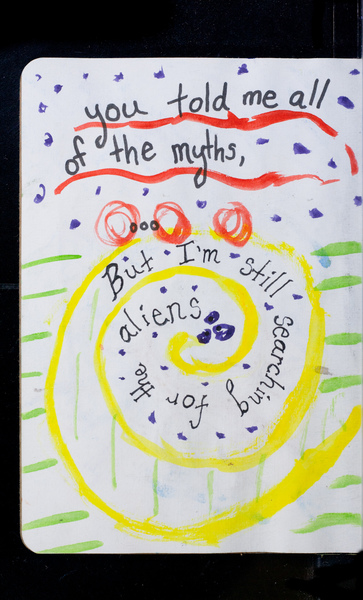 you told me all
of the myths,
But I'm still searching for the aliens